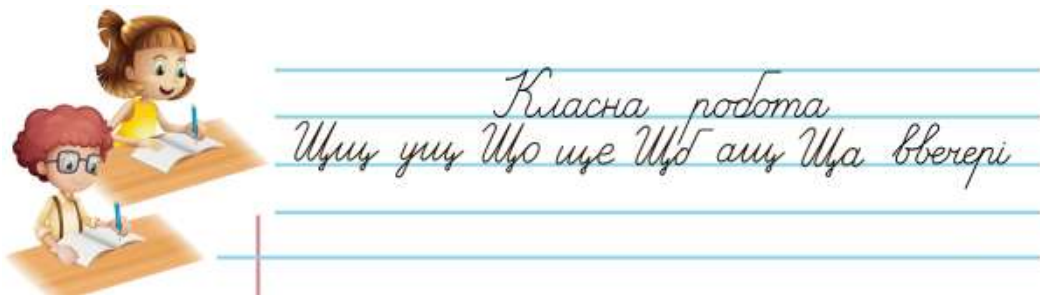 Класна робота
Щщ ущ Що ще Щб ащ Ща ввечері